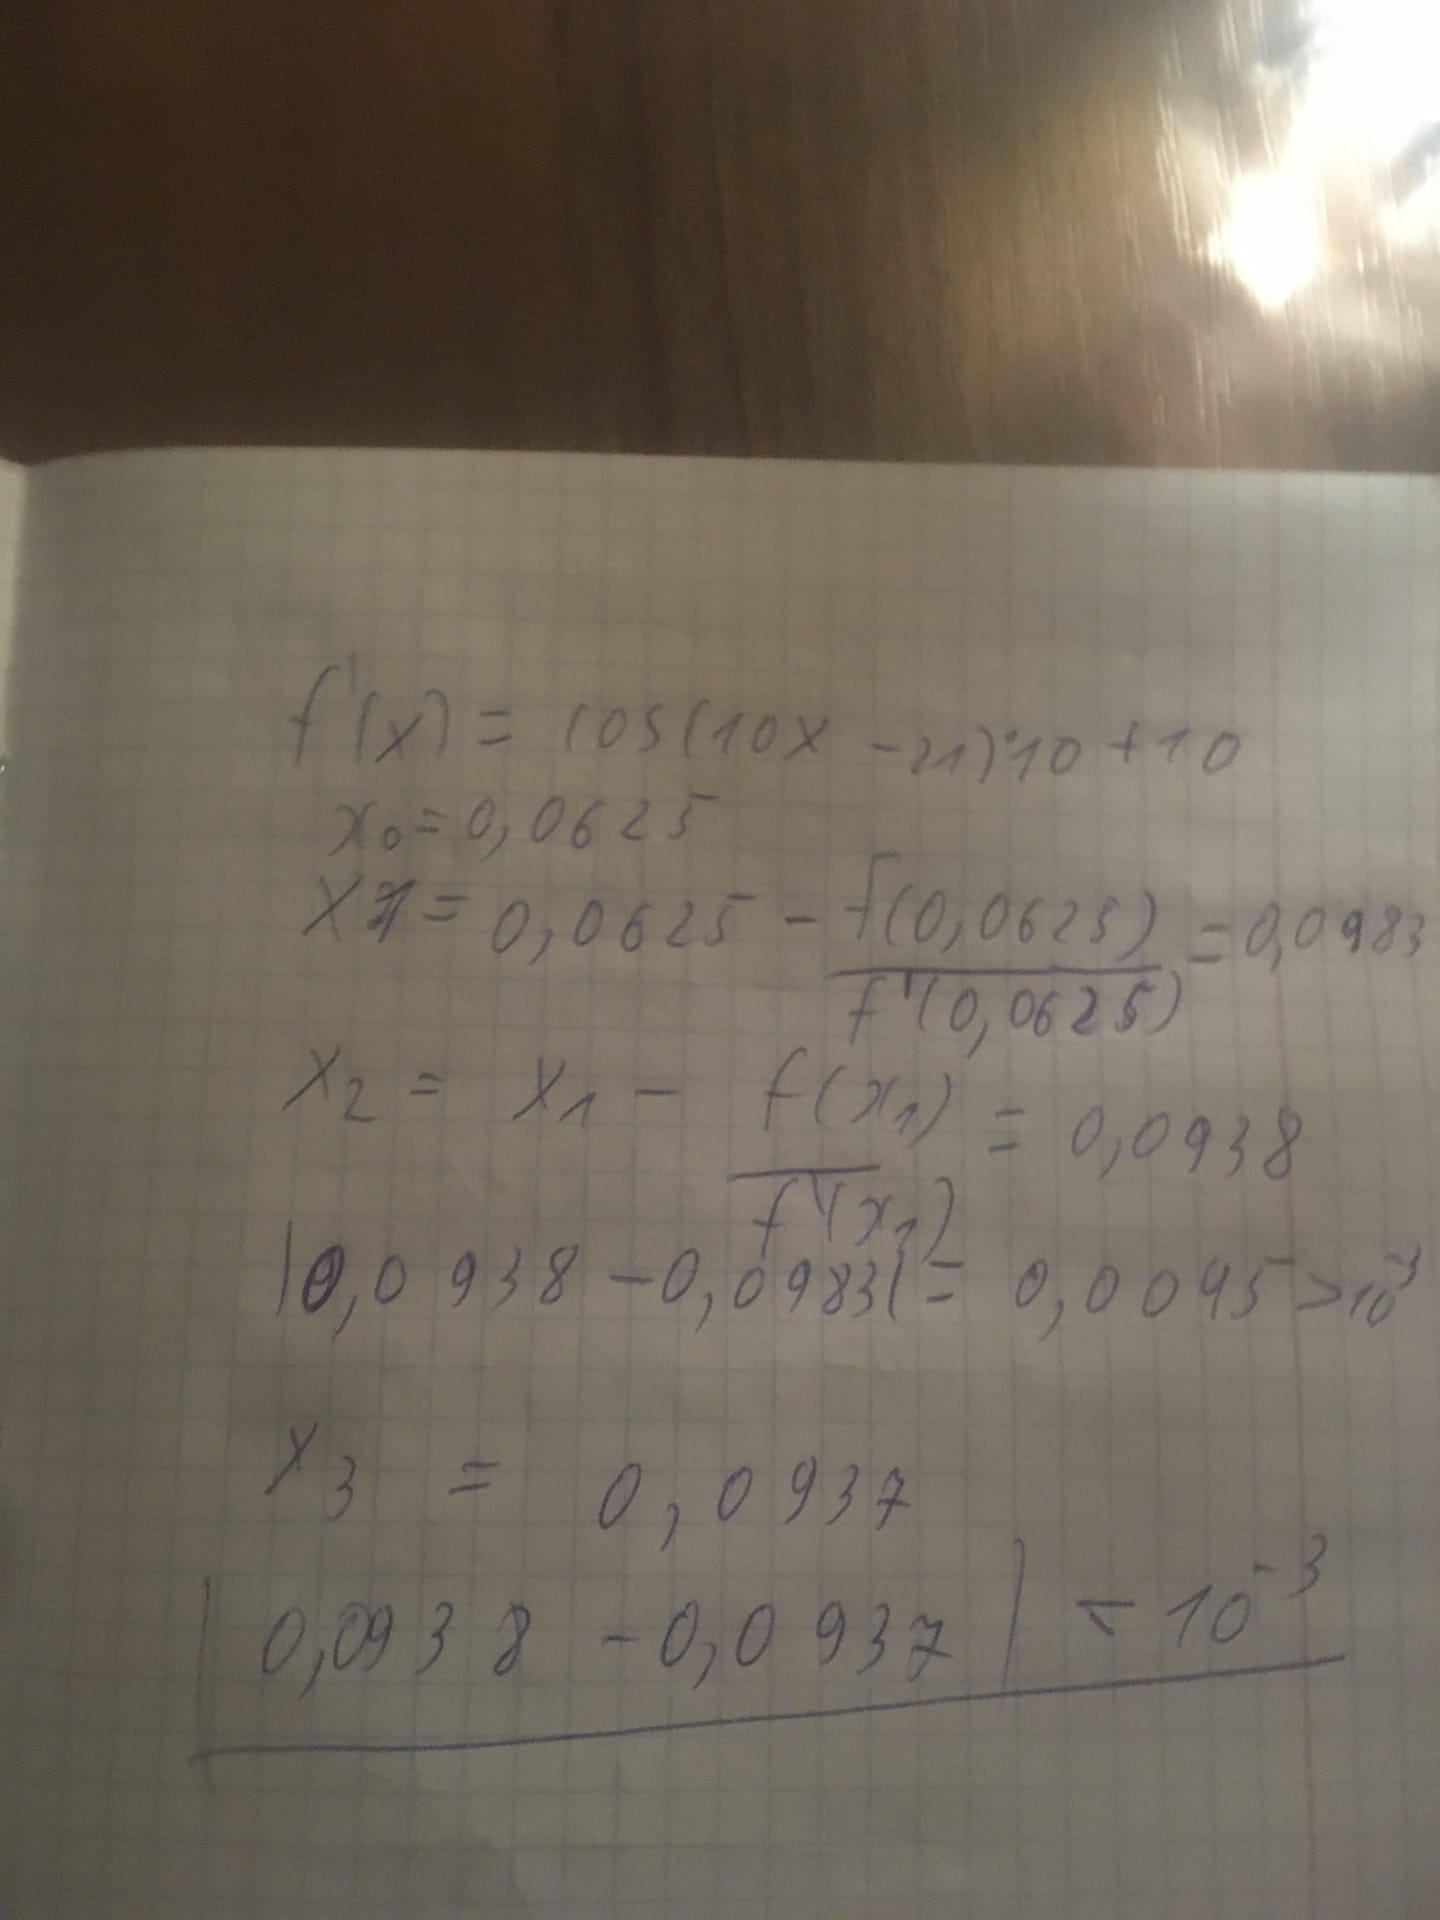 f'(x) = cos(10x - 21)·10 + 10
x₀ = 0,0625
x1 = 0,0625 - f(0,0625) / f'(0,0625) = 0,0983
x₂ = x₁ - f(x₁) / f'(x₁) = 0,0938
|0,0938 - 0,0983| = 0,0045 > 10⁻³
x₃ = 0,0937
|0,0938 - 0,0937| < 10⁻³